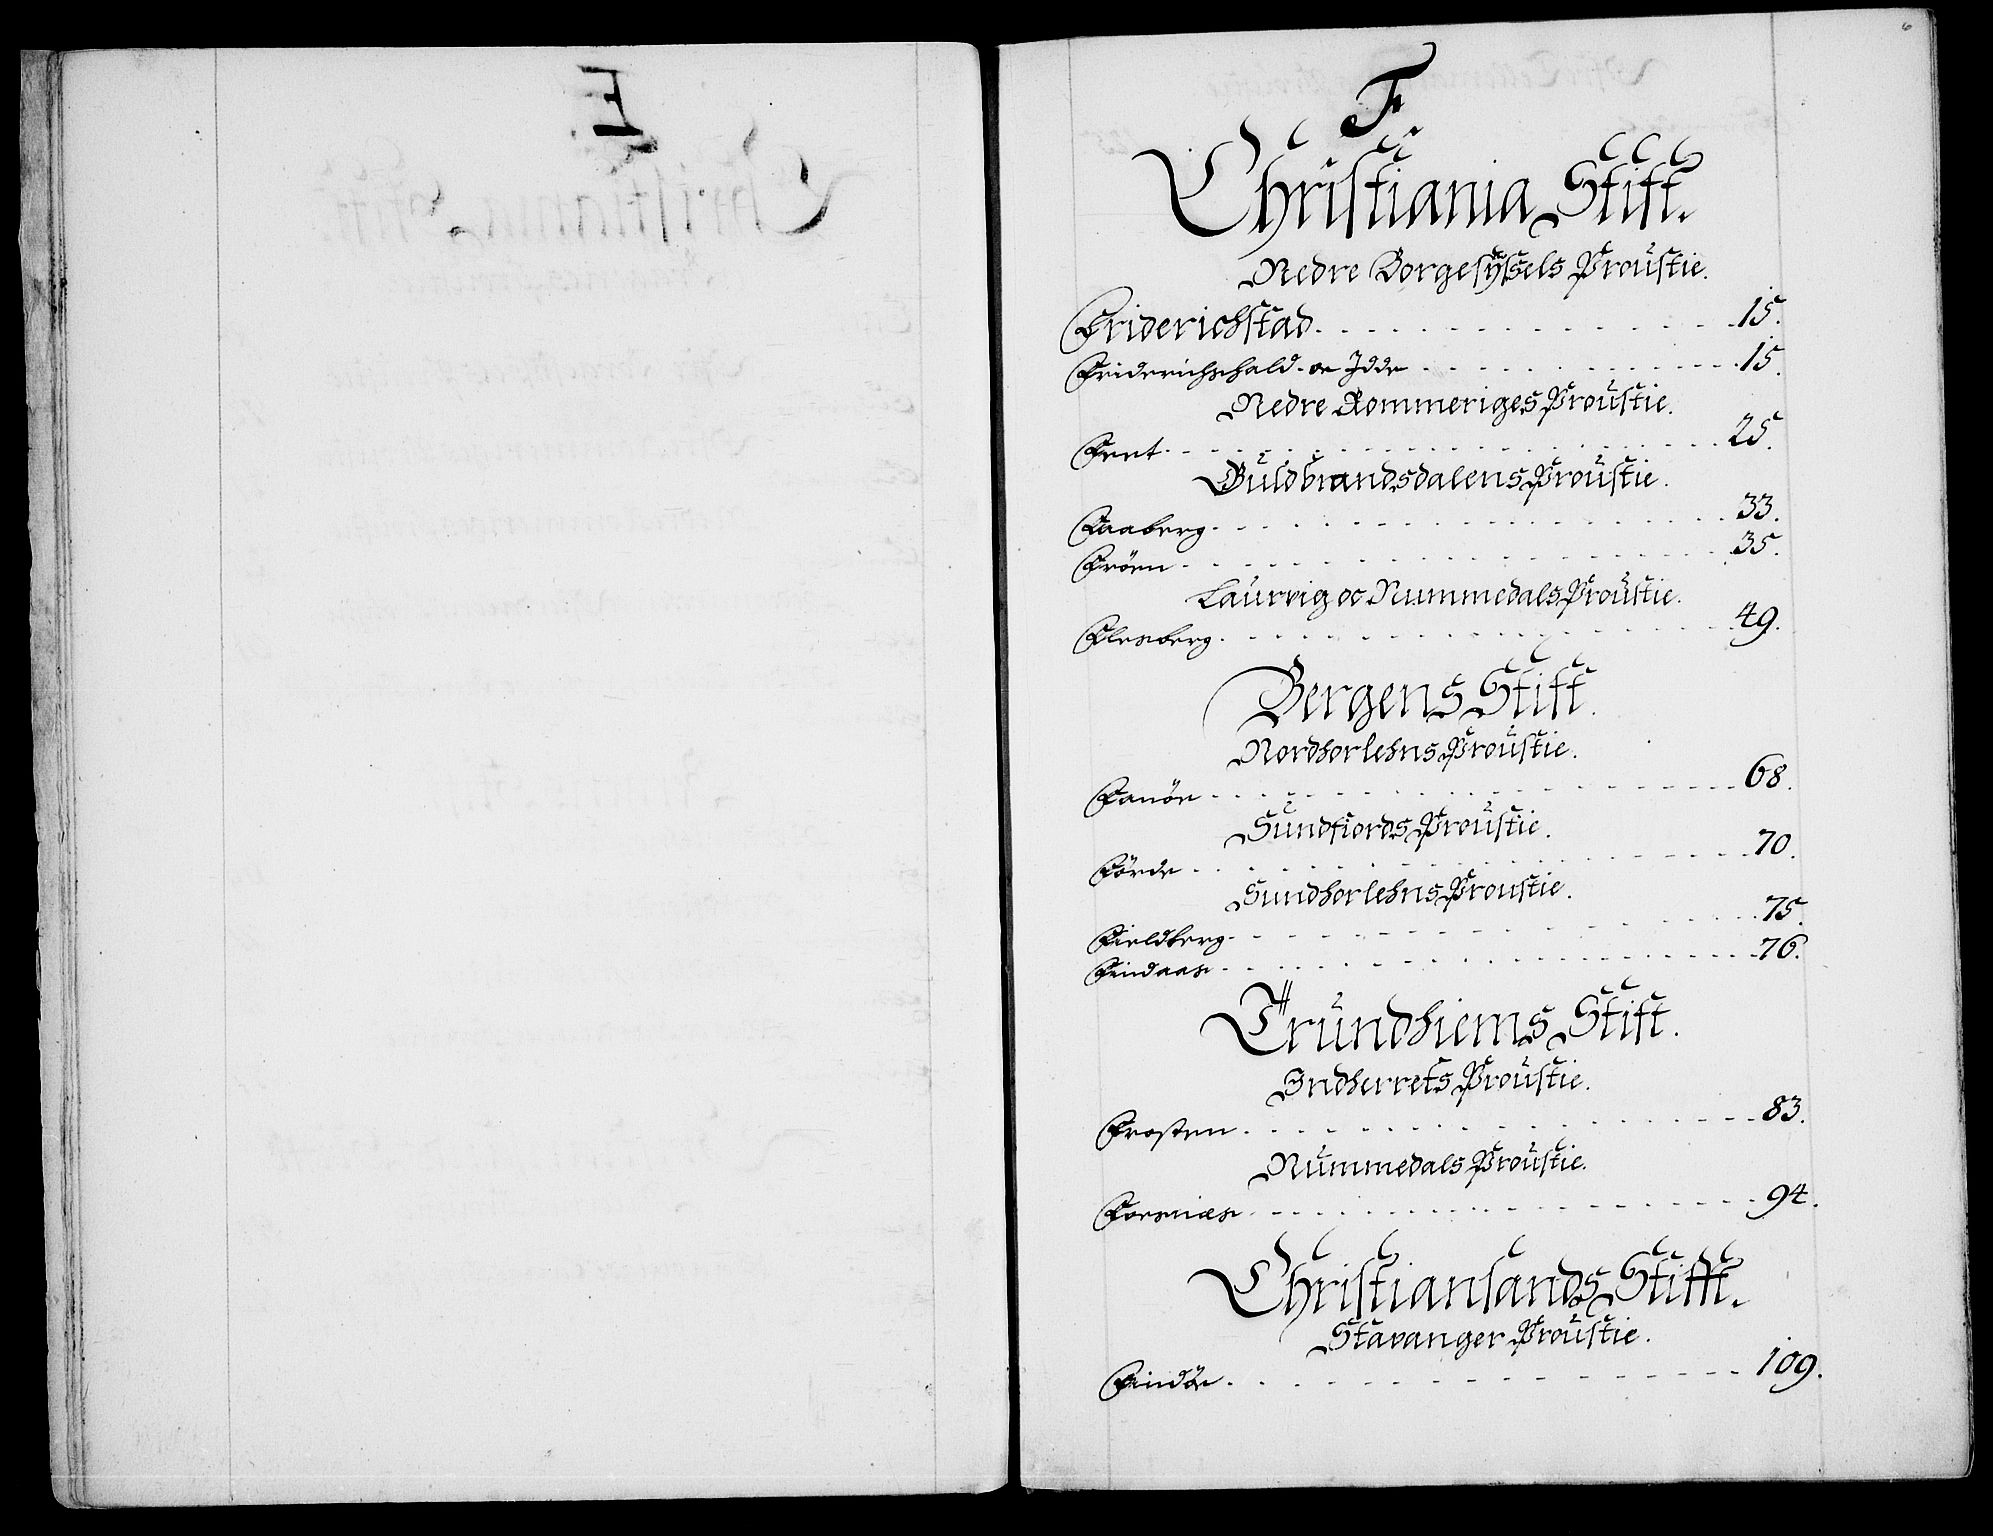 6
F
Christiania Stift.
Nedre Borgesÿssels Proustie.
Friderichstad 15.
Friderichshald oc Idde 15.
Nedre Rommeriges Proustie.
Feet 25.
Guldbrandsdalens Proustie.
Faaberg 33.
Fröen 35.
Laurvig oc Nummedals Proustie.
Flesberg 49.
Bergens Stift.
Nordhorlehns Proustie.
Fanöe 68.
Sundfiords Proustie.
Förde 70.
Sundhorlehns Proustie.
Fieldberg 75.
Findaas 76.
Trundhiems Stift.
Indherrets Proustie.
Frosten 83.
Nummedals Proustie.
Fosnæs 94.
Christiansands Stifft.
Stavanger Proustie.
Findöe 109.